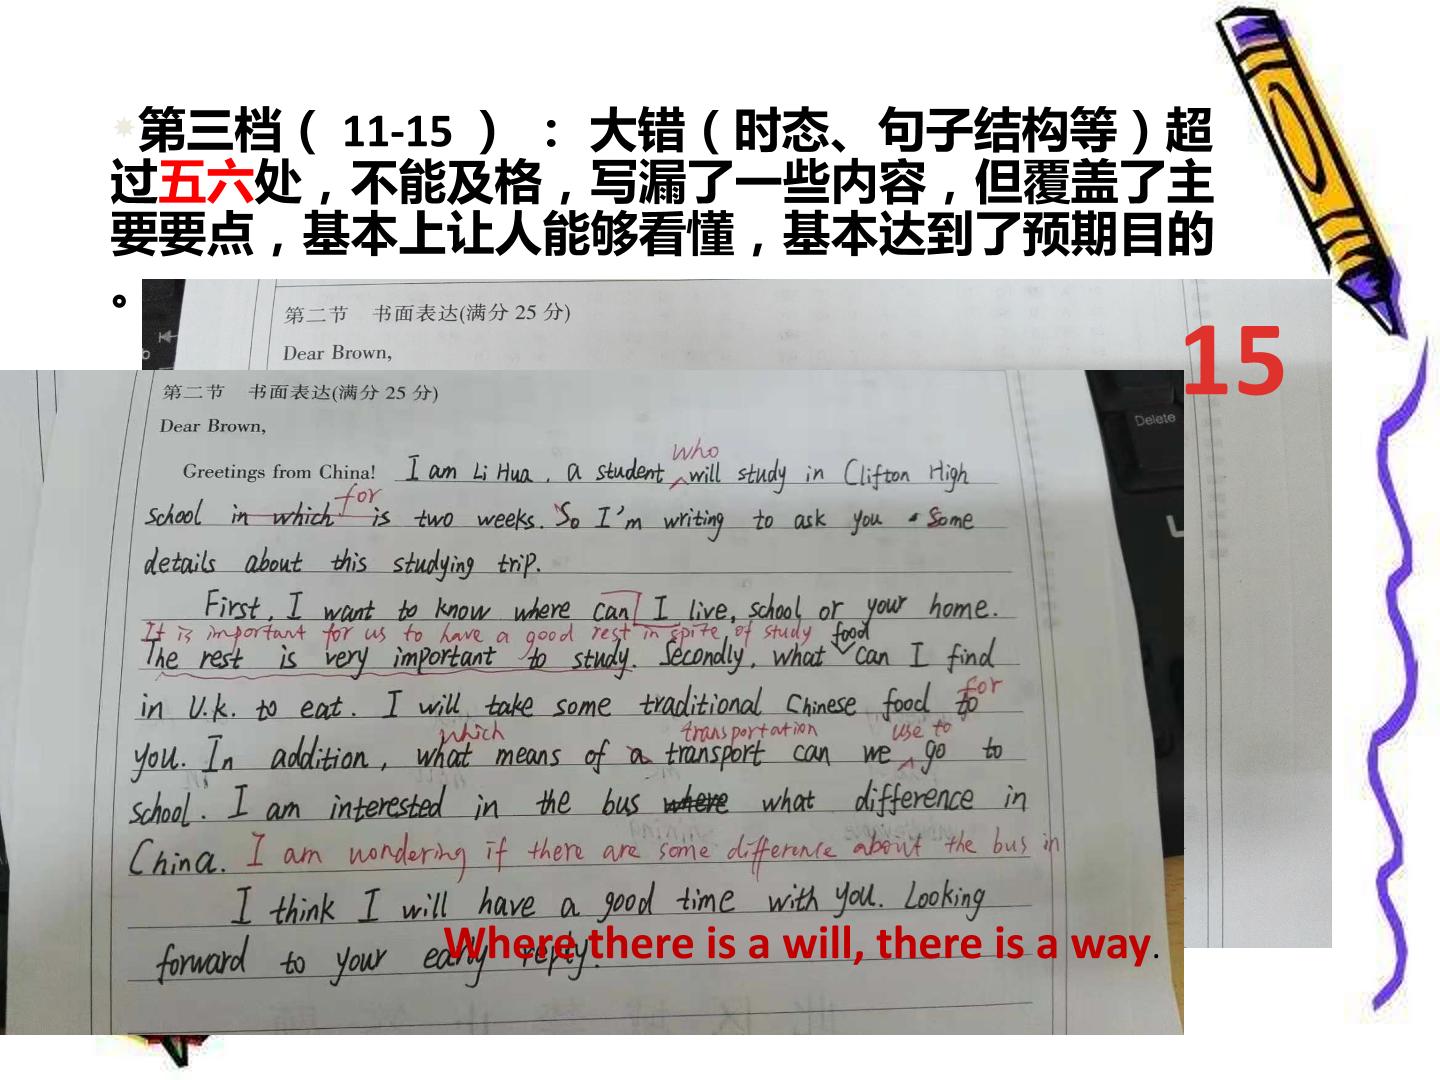 第三档（ 11-15 ）：大错（时态、句子结构等）超
过五六处，不能及格，写漏了一些内容，但覆盖了主
要要点，基本上让人能够看懂，基本达到了预期目的
。
第二节 书面表达(满分 25 分)
Dear Brown,
15
Delete
第二节 书面表达(满分 25 分)
Dear Brown,
who
Greetings from China! I am Li Hua, a student will study in Clifton High
for
school in which is two weeks. So I'm writing to ask you some
details about this studying trip.
First, I want to know where can I live, school or your home.
It is important for us to have a good rest in spite of study
food
The rest is very important to study. Secondly, what can I find
for
in U.k. to eat. I will take some traditional Chinese food to
which transportation use to
you. In addition, what means of a transport can we go to
school. I am interested in the bus where what difference in
China. I am wondering if there are some difference about the bus in
I think I will have a good time with you. Looking
forward to your early reply.
Where there is a will, there is a way.